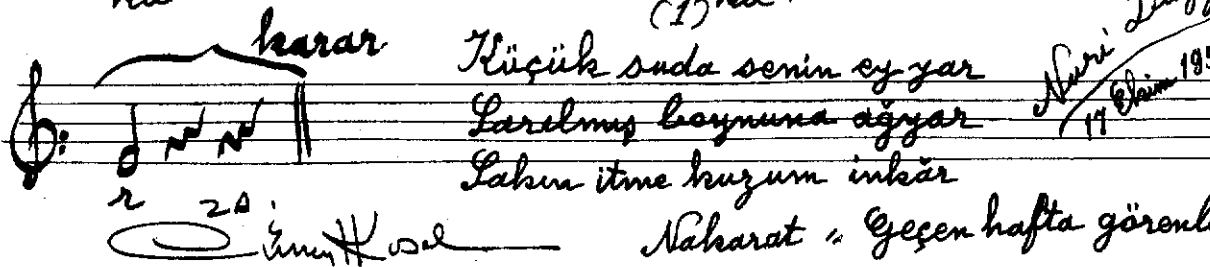 (1)
karar
Küçük suda senin ey yar
Sarılmış boynuna ağyar
Sakın itme kuzum inkâr
Nakarat " Geçen hafta görenl
Nuri
17 Ekim 195
r 2s.